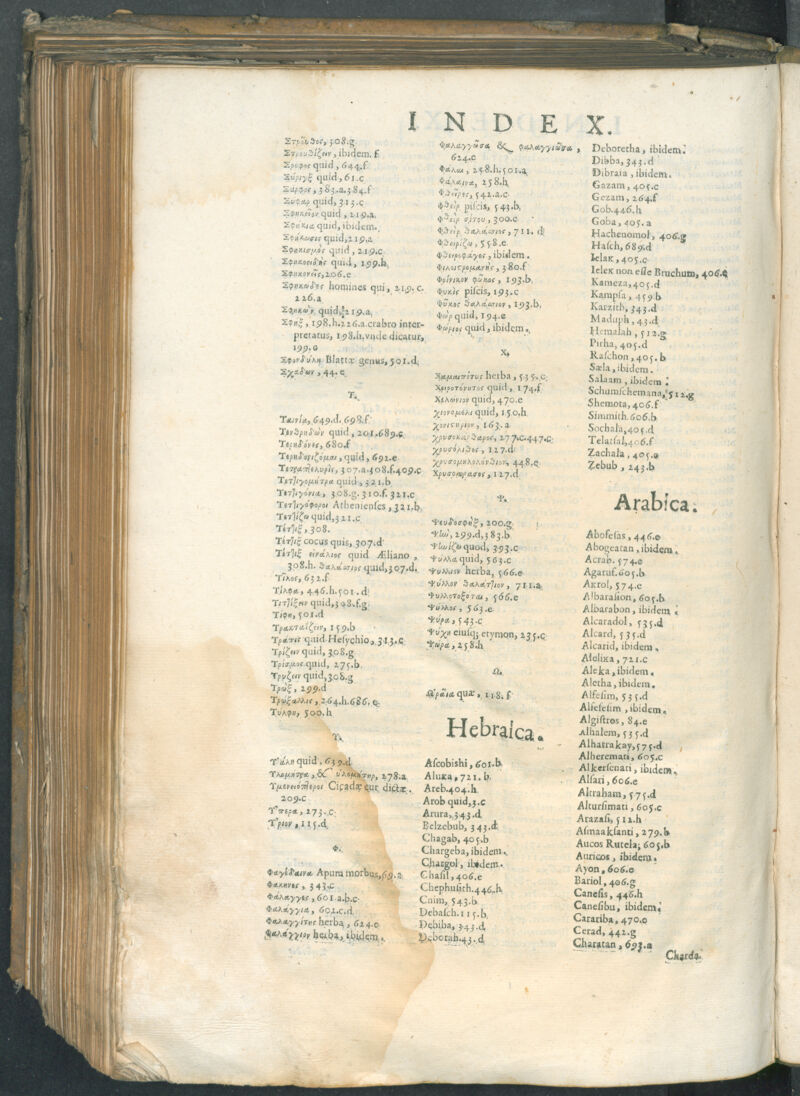 INDEX.
Στρουθος, 308.g
Στρουθίζειν, ibidem. f
Στροφος quid, 644.f
Σύριγξ quid, 61.c
Σύρφος, 383.a.384.f
Συφαρ quid, 313.c
Σφηκεῖον quid, 219.a.
Σφηκία quid, ibidem.
quid, 219.a
Σφηκισμὸς quid, 219.c
Σφηκοειδὴς quid, 199.h
206.e
Σφηκώδης homines qui, 219.c.
226.a
Σφηκών quid, 219.a.
Σφὴξ, 198.h.226.a.crabro inter-
pretatus, 198.h.vnde dicatur,
199.e
Σφονδύλη Blattæ genus, 501.d.
Σχαδων, 44.e
T.
Ταινία, 649.d. 698.f
Τενθρηδών quid, 201.689.c
Τερηδόνες, 680.f
Τερηδονίζομαι, quid, 692.e
307.a.308.f.409.c
Τεττιγομήτρα quid, 321.b
Τεττιγόνια, 308.g.310.f.321.c
Τεττιγοφοροι Athenienses, 321.b
Τεττίζω quid, 321.c
Τέττιξ, 308.
Τέττιξ cocus quis, 307.d
Τέττιξ εἰνάλιος quid Æliano,
308.h. θαλάττιος quid, 307.d.
Τίλος, 632.f
Τίλφα, 446.h.501.d
Τιτίζειν quid, 308.f.g
Τίφη, 501.d
159.b
quid Hesychio, 313.c
Τρίζειν quid, 308.g
Τρίσμος quid, 275.b
Τρύζειν quid, 308.g
Τρὼξ, 299.d
Τρωξαλλὶς, 264.h.686.e
Τύλφη, 500.h
Υ.
Ὕλη quid. 639.d
& 278.a
Cicadæ cur dictæ.
209.c
Ὕπερα, 273.c
Ὕριον, 115.d
Φ.
Φαγέδαινα Apum morbus, 69.a
343.c
Φάλαγγες, 601.a.b.c
Φαλάγγια, 601.c.d
Φαλαγγίτης herba, 624.e
Φαλάγγιον herba, ibidem.
Φαλαγγῶσα & φαλαγγιῶσα,
624.c
Φάλαι, 258.h.501.a
Φάλαινα, 258.h
Φθεῖρες, 542.a.c
Φθεὶρ piscis, 543.b
Φθεὶρ 300.c
Φθεὶρ θαλάττιος, 711.d
Φθειρίζω, 558.e
Φθειροφάγος, ibidem.
380.f
193.b
Φυκὶς piscis, 193.c
Φῦκος θαλάττιον, 193.b
Φὼρ quid, 194.e
Φώριος quid, ibidem.
X.
Χαμαιπίτυς herba, 535.c
Χειροτόνητος quid, 174.f
Χελώνιον quid, 470.e
quid, 150.h
163.a
277.c.447.c
Χρυσόλιθος, 127.d
Χρυσομηλολόνθιον, 448.e
Χρυσόπρασος, 127.d
Ψ.
Ψευδοσφὴξ, 200.g
299.d, 383.b
quod, 393.c
Ψύλλα quid, 563.c
Ψύλλιον herba, 566.e
Ψύλλον θαλάττιον, 711.a
Ψυλλοτοξόται, 566.e
Ψύλλος, 563.e
Ψύρα, 543.c
Ψυχὴ eiusq; etymon, 235.c
Ψώρα, 258.h
Ω.
Ὡραῖα quæ, 118.f
Hebraica.
Ascobishi, 601.b
Aluka, 721.b
Areb. 404.h
Arob quid, 3.c
Arura, 343.d
Belzebub, 343.d
Chagab, 405.b
Chargeba, ibidem.
Chargol, ibidem.
Chasil, 406.e
Chephusith. 446.h
Cnim, 543.b
Debasch. 115.b
Debiba, 343.d
Deborah. 43.d
Deboretha, ibidem.
Dibba, 343.d
Dibraia, ibidem.
Gazam, 405.c
Gezam, 264.f
Gob. 446.h
Goba, 405.a
Hachenomol, 406.g
Hasch, 689.d
Ielak, 405.c
Ielek non esse Bruchum, 406.e
Kameza, 405.d
Kampia, 459.b
Karzith, 343.d
Maduph, 43.d
Hemalah, 512.g
Pirha, 405.d
Raschon, 405.b
Sæla, ibidem.
Salaam, ibidem.
Schumschemana, 512.g
Shemota, 406.f
Simmith. 606.b
Sochala, 405.d
Telatsal, 406.f
Zachala, 405.e
Zebub, 243.b
Arabica.
Abofesas, 446.e
Abogeatan, ibidem.
Acrab. 574.e
Agaruf. 605.b
Akrol, 574.e
Albarasion, 605.b
Albarabon, ibidem.
Alcaradol, 535.d
Alcard, 535.d
Alcarid, ibidem.
Alelixa, 721.c
Aleka, ibidem.
Aletha, ibidem.
Alfesim, 535.d
Alfefesim, ibidem.
Algistros, 84.e
Alhalem, 535.d
Alhatrakay, 575.d
Alheremati, 605.c
Alkersenati, ibidem.
Alsari, 606.e
Altraham, 575.d
Altursimati, 605.c
Arazasi, 512.h
Asmaaksanti, 279.b
Aucos Rutela; 605.b
Auricos, ibidem.
Ayon, 606.e
Bariol, 406.g
Canesis, 446.h
Canesibu, ibidem.
Carariba, 470.e
Cerad, 442.g
Charatan, 693.a
Charda.